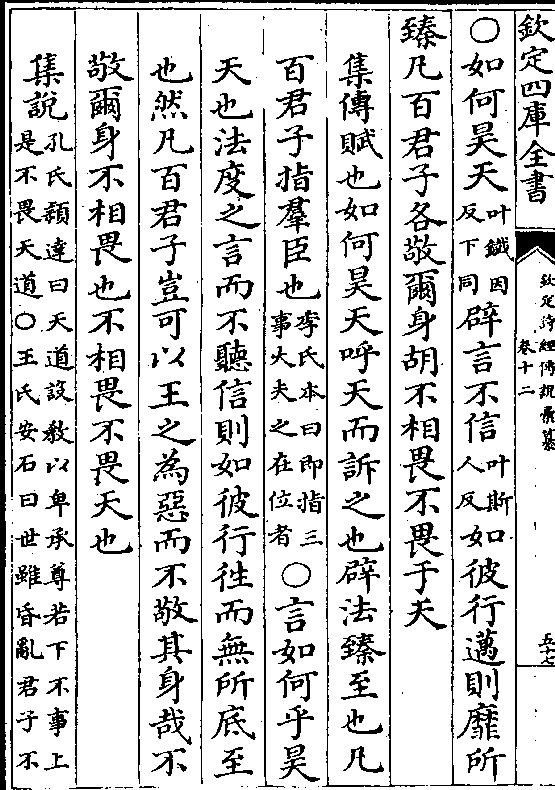 欽定四庫全書
欽定詩經傳說彙纂
卷十二
五十七
○如何昊天叶鐵因反下同辟言不信叶斯人反如彼行邁則靡所
臻凡百君子各敬爾身胡不相畏不畏于天
集傳賦也如何昊天呼天而訴之也辟法臻至也凡
百君子指羣臣也李氏本曰即指三事大夫之在位者○言如何乎昊
天也法度之言而不聽信則如彼行往而無所底至
也然凡百君子豈可以王之為惡而不敬其身哉不
敬爾身不相畏也不相畏不畏天也
集說孔氏穎達曰天道設教以卑承尊若下不事上
是不畏天道○王氏安石曰世雖昏亂君子不